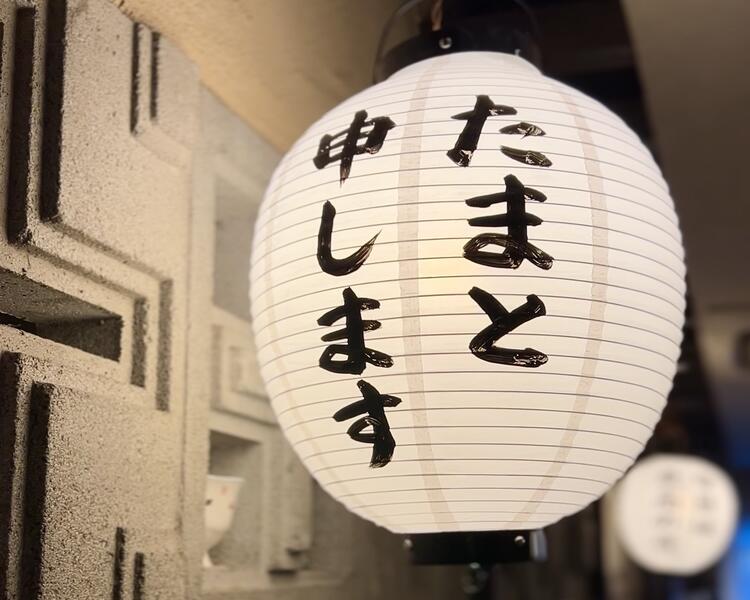 たまと
申します